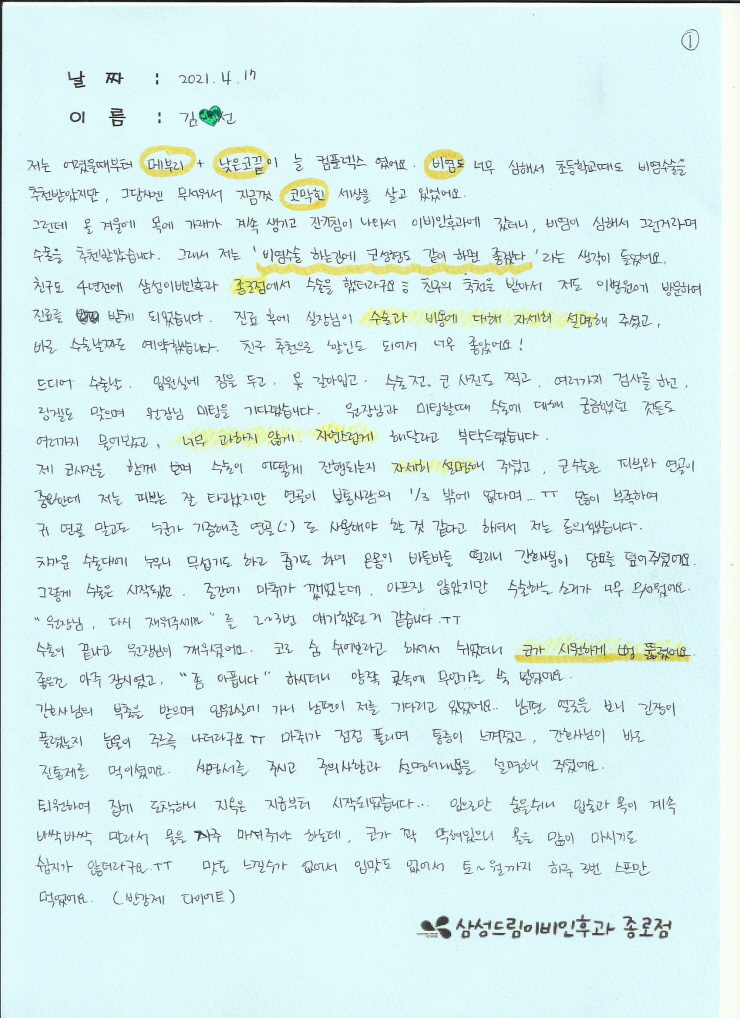 ①
날 짜 : 2021. 4. 17
이 름 : 김 선
저는 어렸을때부터 메부리 + 낮은코끝이 늘 컴플렉스 였어요. 비염도 너무 심해서 초등학교때도 비염수술을
추천받았지만, 그당시엔 무서워서 지금껏 코막힌 세상을 살고 있었어요.
그런데 올 겨울에 목에 가래가 계속 생기고 잔기침이 나와서 이비인후과에 갔더니, 비염이 심해서 그런거라며
수술을 추천받았습니다. 그래서 저는 '비염수술 하는김에 코성형도 같이 하면 좋겠다'라는 생각이 들었어요.
친구도 4년전에 삼성이비인후과 종로점에서 수술을 했더라구요 친구의 추천을 받아서 저도 이병원에 방문하여
진료를 받게 되었습니다. 진료 후에 실장님이 수술과 비용에 대해 자세히 설명해 주셨고,
바로 수술날짜도 예약했습니다. 친구 추천으로 할인도 되어서 너무 좋았어요!
드디어 수술날. 입원실에 짐을 두고. 옷 갈아입고. 수술전. 코 사진도 찍고, 여러가지 검사를 하고,
링겔도 맞으며 원장님 미팅을 기다렸습니다. 원장님과 미팅할때 수술에 대해 궁금했던 것들도
여러가지 물어봤고, 너무 과하지 않게 자연스럽게 해달라고 부탁드렸습니다.
제 코사진을 함께 보며 수술이 어떻게 진행되는지 자세히 설명해 주셨고, 코수술은 피부와 연골이
중요한데 저는 피부는 잘 타고났지만 연골이 보통사람의 1/3 밖에 없다며... ㅜㅜ 많이 부족하여
귀 연골 말고도 누군가 기증해준 연골(:)도 사용해야 할 것 같다고 하셔서 저는 동의했습니다.
차가운 수술대에 누우니 무섭기도 하고 춥기도 하여 온몸이 바들바들 떨리니 간호사분이 담요를 덮어주셨어요.
그렇게 수술은 시작됐고. 중간에 마취가 깼었는데. 아프진 않았지만 수술하는 소리가 너무 무서웠어요.
"원장님, 다시 재워주세요"를 2~3번 얘기했던거 같습니다.ㅜㅜ
수술이 끝나고 원장님이 깨우셨어요. 코로 숨 쉬어보라고 하셔서 쉬었더니 코가 시원하게 뻥 뚫렸어요.
좋은건 아주 잠시였고, "좀 아픕니다" 하시더니 양쪽 콧속에 무언가를 쏙 넣었어요.
간호사님의 부축을 받으며 입원실에 가니 남편이 저를 기다리고 있었어요.. 남편 얼굴을 보니 긴장이
풀렸는지 눈물이 주르륵 나더라구요ㅜㅜ 마취가 점점 풀리며 통증이 느껴졌고, 간호사님이 바로
진통제를 먹이셨어요. 설명서를 주시고 주의사항과 설명서내용을 설명해 주셨어요.
퇴원하여 집에 도착하니 지옥은 지금부터 시작되었습니다... 입으로만 숨을쉬니 입술과 목이 계속
바싹바싹 말라서 물을 자주 마셔줘야 하는데, 코가 꽉 막혀있으니 물을 많이 마시기도
쉽지가 않더라구요.ㅜㅜ 맛도 느낄수가 없어서 입맛도 없어서 토~월까지 하루 3번 스프만
먹었어요. (반강제 다이어트)
삼성드림이비인후과 종로점